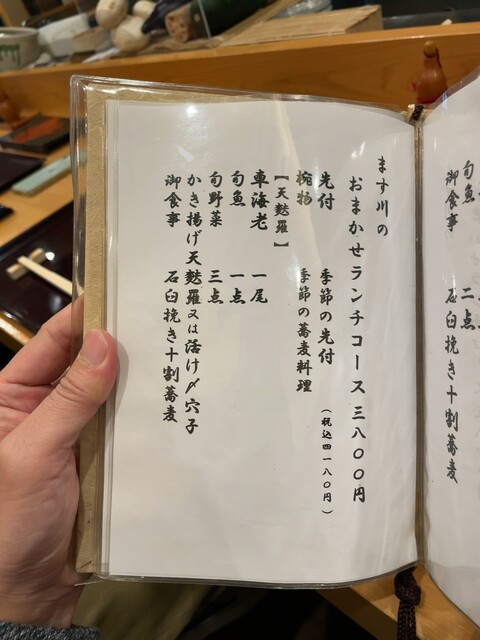 旬魚 二点
御食事 石臼挽き十割蕎麦
ます川の
おまかせランチコース 三八〇〇円
(税込四一八〇円)
先付 季節の先付
椀物 季節の蕎麦料理
【天麩羅】
車海老 一尾
旬魚 一点
旬野菜 三点
かき揚げ天麩羅又は活け〆穴子
御食事 石臼挽き十割蕎麦